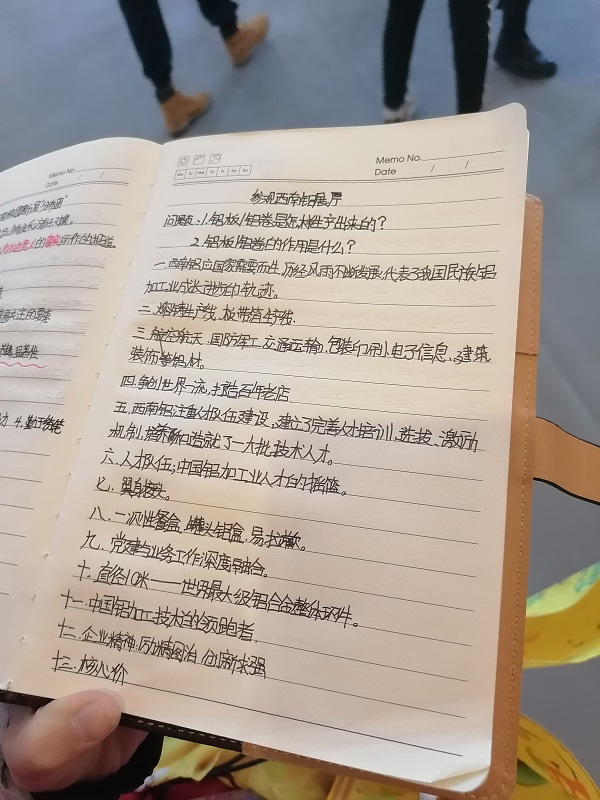 Memo No.
Date / /
Memo No.
Date / /
Mo Tu We Th Fr Sa Su
参观西南铝展厅
问题:1.铝板/铝卷是怎么样生产出来的?
2.铝板/铝卷的作用是什么?
一.西南铝应国家需要而生,历经风雨不断发展,代表了我国民族铝
加工业成长进步的轨迹。
二.熔铸生产线、板带箔生产线.
三.航空航天、国防军工、交通运输、包装印刷、电子信息、建筑
装饰等铝材。
四.争创世界一流,打造百年老店.
五.西南铝注重人才队伍建设,建立了完善人才培训、选拔、激励
机制,培养和造就了一大批技术人才。
六.人才队伍:中国铝加工业人才的摇篮。
七.翼身
八.一次性餐盒、罐头铝盒、易拉罐。
九.党建与业务工作深度融合。
十.直径10米——世界最大级铝合金整体环件。
十一.中国铝加工技术的领跑者.
十二.企业精神:励精图治 创新求强
十三.核心价